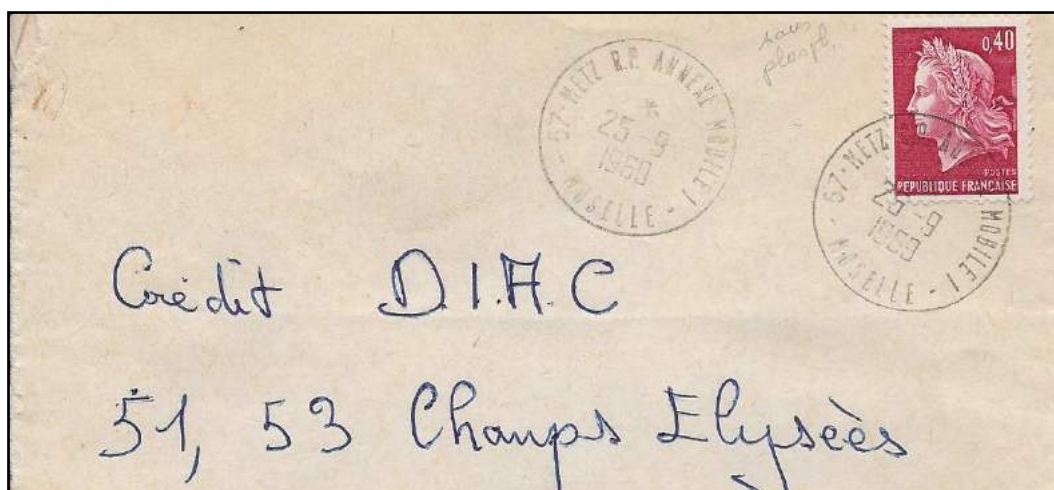 57-METZ R.P. ANNEXE MOBILE 1
*
25-9
1969
- MOSELLE -
sans
phosph.
0,40
POSTES
REPUBLIQUE FRANÇAISE
57-METZ
MOBILE 1
25-9
1969
- MOSELLE -
Crédit D.I.A.C
51, 53 Champs Elyseès